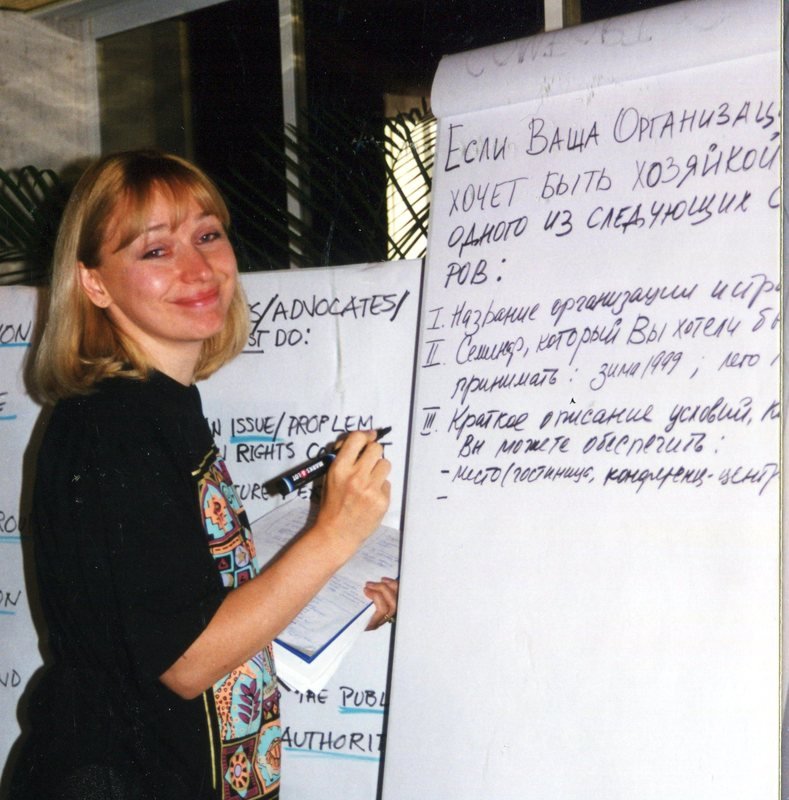 ЕСЛИ ВАША ОРГАНИЗАЦ
ХОЧЕТ БЫТЬ ХОЗЯЙКОЙ
ОДНОГО ИЗ СЛЕДУЮЩИХ С
РОВ:
I. Название организации и стра
II. Семинар, который Вы хотели бы
принимать: зима 1999; лето
III. Краткое описание условий, к
Вы можете обеспечить:
- место (гостиница, конференц-центр
-
S/ADVOCATES/
ST DO:
N ISSUE/PROPLEM
N RIGHTS CO
TURE
THE PUBL
AUTHORIT
ION
E
ROU
ON
ND
MARKS LOT